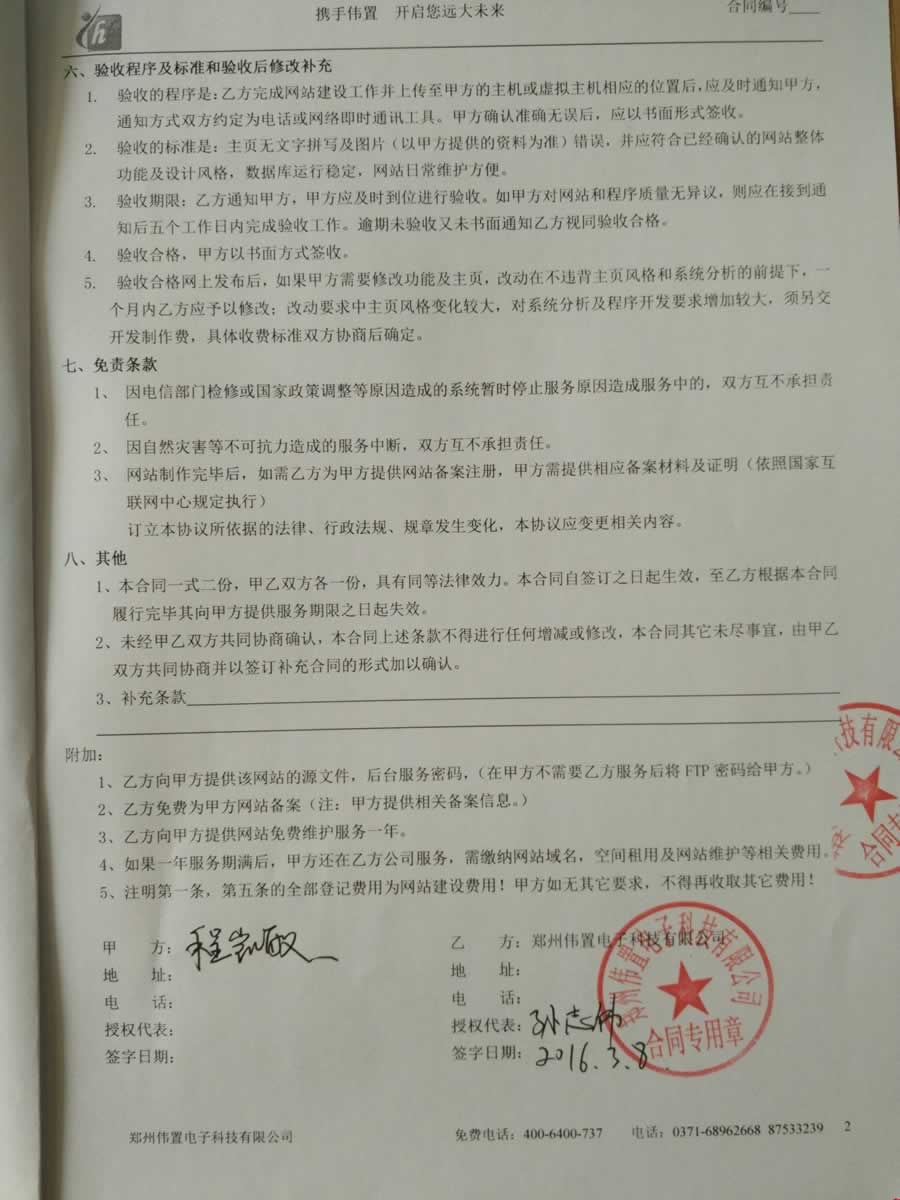 携手伟置　开启您远大未来
合同编号____
六、验收程序及标准和验收后修改补充
1. 验收的程序是：乙方完成网站建设工作并上传至甲方的主机或虚拟主机相应的位置后，应及时通知甲方，
通知方式双方约定为电话或网络即时通讯工具。甲方确认准确无误后，应以书面形式签收。
2. 验收的标准是：主页无文字拼写及图片（以甲方提供的资料为准）错误，并应符合已经确认的网站整体
功能及设计风格，数据库运行稳定，网站日常维护方便。
3. 验收期限：乙方通知甲方，甲方应及时到位进行验收。如甲方对网站和程序质量无异议，则应在接到通
知后五个工作日内完成验收工作。逾期未验收又未书面通知乙方视同验收合格。
4. 验收合格，甲方以书面方式签收。
5. 验收合格网上发布后，如果甲方需要修改功能及主页，改动在不违背主页风格和系统分析的前提下，一
个月内乙方应予以修改；改动要求中主页风格变化较大，对系统分析及程序开发要求增加较大，须另交
开发制作费，具体收费标准双方协商后确定。
七、免责条款
1、 因电信部门检修或国家政策调整等原因造成的系统暂时停止服务原因造成服务中的，双方互不承担责
任。
2、 因自然灾害等不可抗力造成的服务中断，双方互不承担责任。
3、 网站制作完毕后，如需乙方为甲方提供网站备案注册，甲方需提供相应备案材料及证明（依照国家互
联网中心规定执行）
订立本协议所依据的法律、行政法规、规章发生变化，本协议应变更相关内容。
八、其他
1、本合同一式二份，甲乙双方各一份，具有同等法律效力。本合同自签订之日起生效，至乙方根据本合同
履行完毕其向甲方提供服务期限之日起失效。
2、未经甲乙双方共同协商确认，本合同上述条款不得进行任何增减或修改，本合同其它未尽事宜，由甲乙
双方共同协商并以签订补充合同的形式加以确认。
3、补充条款
附加：
1、乙方向甲方提供该网站的源文件，后台服务密码，（在甲方不需要乙方服务后将 FTP 密码给甲方。）
2、乙方免费为甲方网站备案（注：甲方提供相关备案信息。）
3、乙方向甲方提供网站免费维护服务一年。
4、如果一年服务期满后，甲方还在乙方公司服务，需缴纳网站域名，空间租用及网站维护等相关费用。
5、注明第一条，第五条的全部登记费用为网站建设费用！甲方如无其它要求，不得再收取其它费用！
科技有限
合同专
甲　　方：程
地　　址：
电　　话：
授权代表：
签字日期：
乙　　方：郑州伟置电子科技有限公司
地　　址：
电　　话：
授权代表：孙志伟
签字日期：2016.3.8
郑州伟置电子科技有限公司
合同专用章
郑州伟置电子科技有限公司
免费电话：400-6400-737　电话：0371-68962668 87533239　2